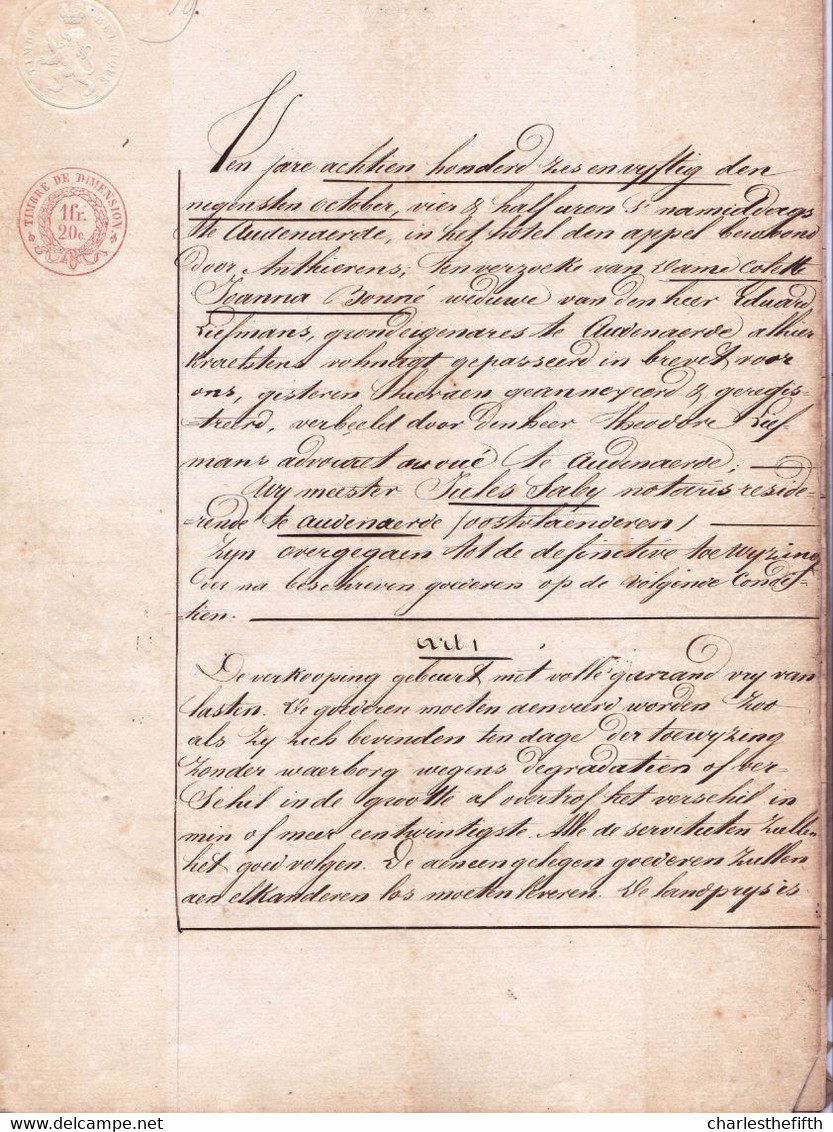 19
TIMBRE DE DIMENSION
1fr.
20c.
Ten jare achtien honderd zes en vyftig den
negensten october, vier & half uren s' namiddags
te Audenaerde, in het hotel den appel bewoond
door Anthierens; Ten verzoeke van Dame Colette
Joanna Bonné weduwe van den heer Eduard
Liefmans, grondeigenares te Audenaerde alhier
krachtens volmagt gepasseerd in brevet voor
ons, gisteren hieraen geannexeerd & geregis-
-treerd, verbeeld door den heer Theodore Lief-
mans advocaet avoué te Audenaerde;
Wy meester Jules Saby notaris reside-
-rende te audenaerde /oostvlaenderen/
Zyn overgegaen tot de definitive toewyzing
der na beschreven goederen op de volgende condi-
tien.
Art 1
De verkooping gebeurt met volle garrand vry van
lasten. De goederen moeten aenveerd worden zoo
als zy zich bevinden ten dage der toewyzing
zonder waerborg wegens degradatien of ver-
schil in de grootte al overtrof het verschil in
min of meer een twintigste. Alle de servituten zullen
het goed volgen. De aeneengelegen goederen zullen
aen elkanderen los moeten leveren. De landprys is
charlesthefifth